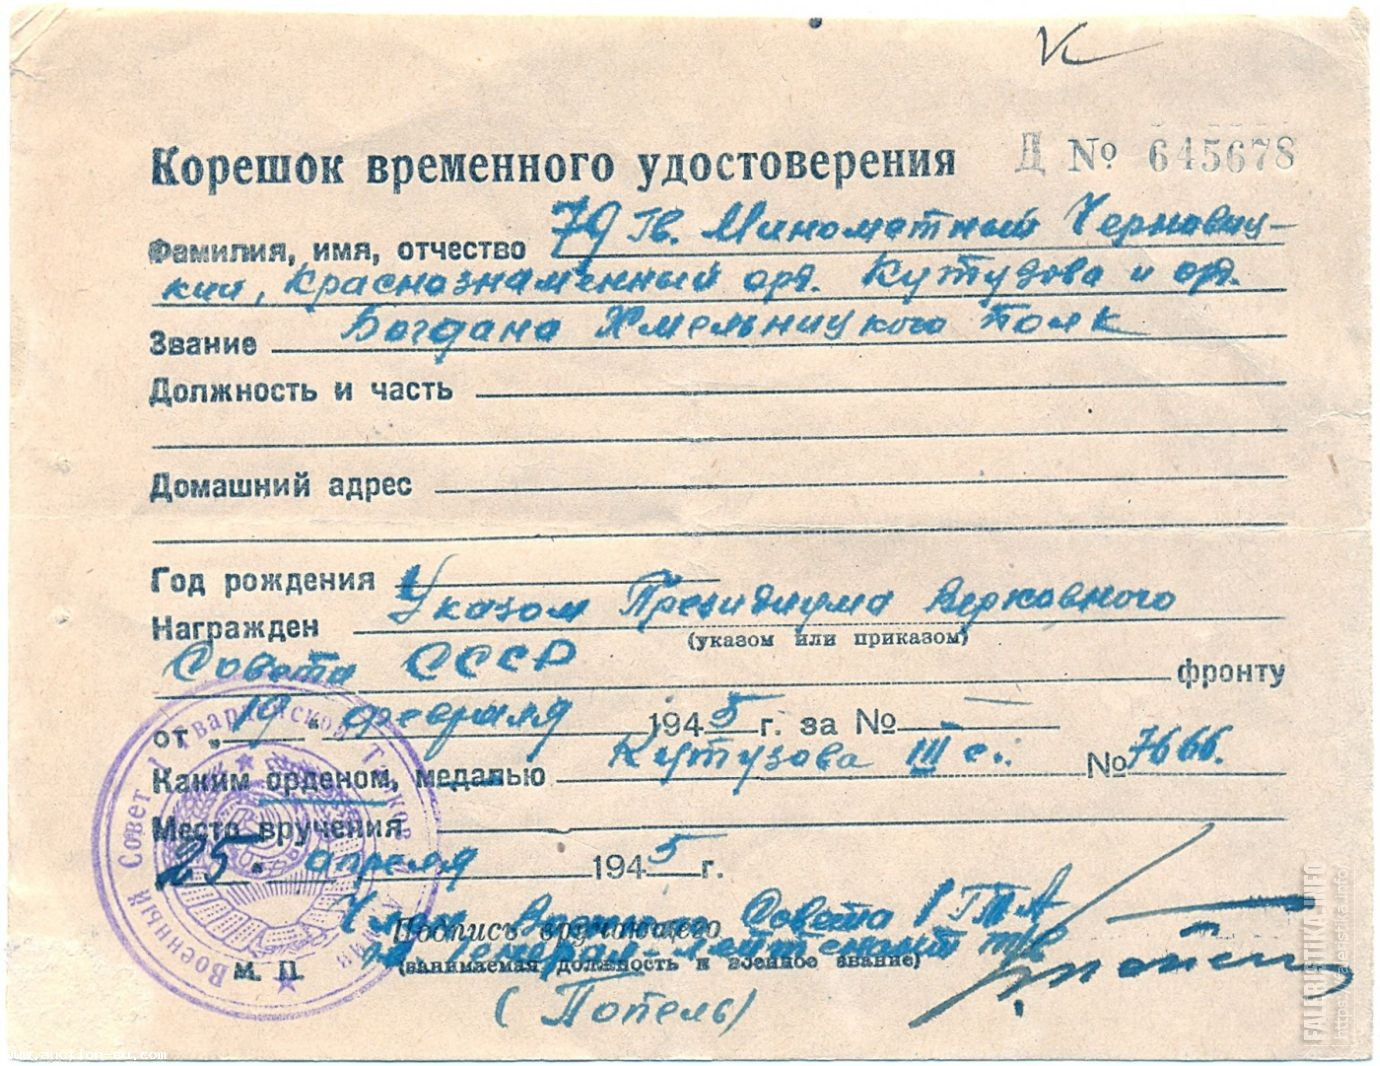 К
Корешок временного удостоверения Д № 645678
Фамилия, имя, отчество 79 Гв. Минометный Черновиц-
кий, Краснознаменный орд. Кутузова и орд.
Звание Богдана Хмельницкого полк
Должность и часть
Домашний адрес
Год рождения
Награжден Указом Президиума Верховного
(указом или приказом)
Совета СССР фронту
от „19“ февраля 1945 г. за № —
Каким орденом, медалью Кутузова III с. № 7666.
Место вручения
25 апреля 1945 г.
Член Военного Совета 1 ГТА
Подпись вручающего
генерал-лейтенант т/в
(занимаемая должность и военное звание)
М. П.
(Попель)
Военный Совет 1 Гвардейской Танковой Армии
www.auction-ru.com
FALERISTIKA.INFO
https://faleristika.info/